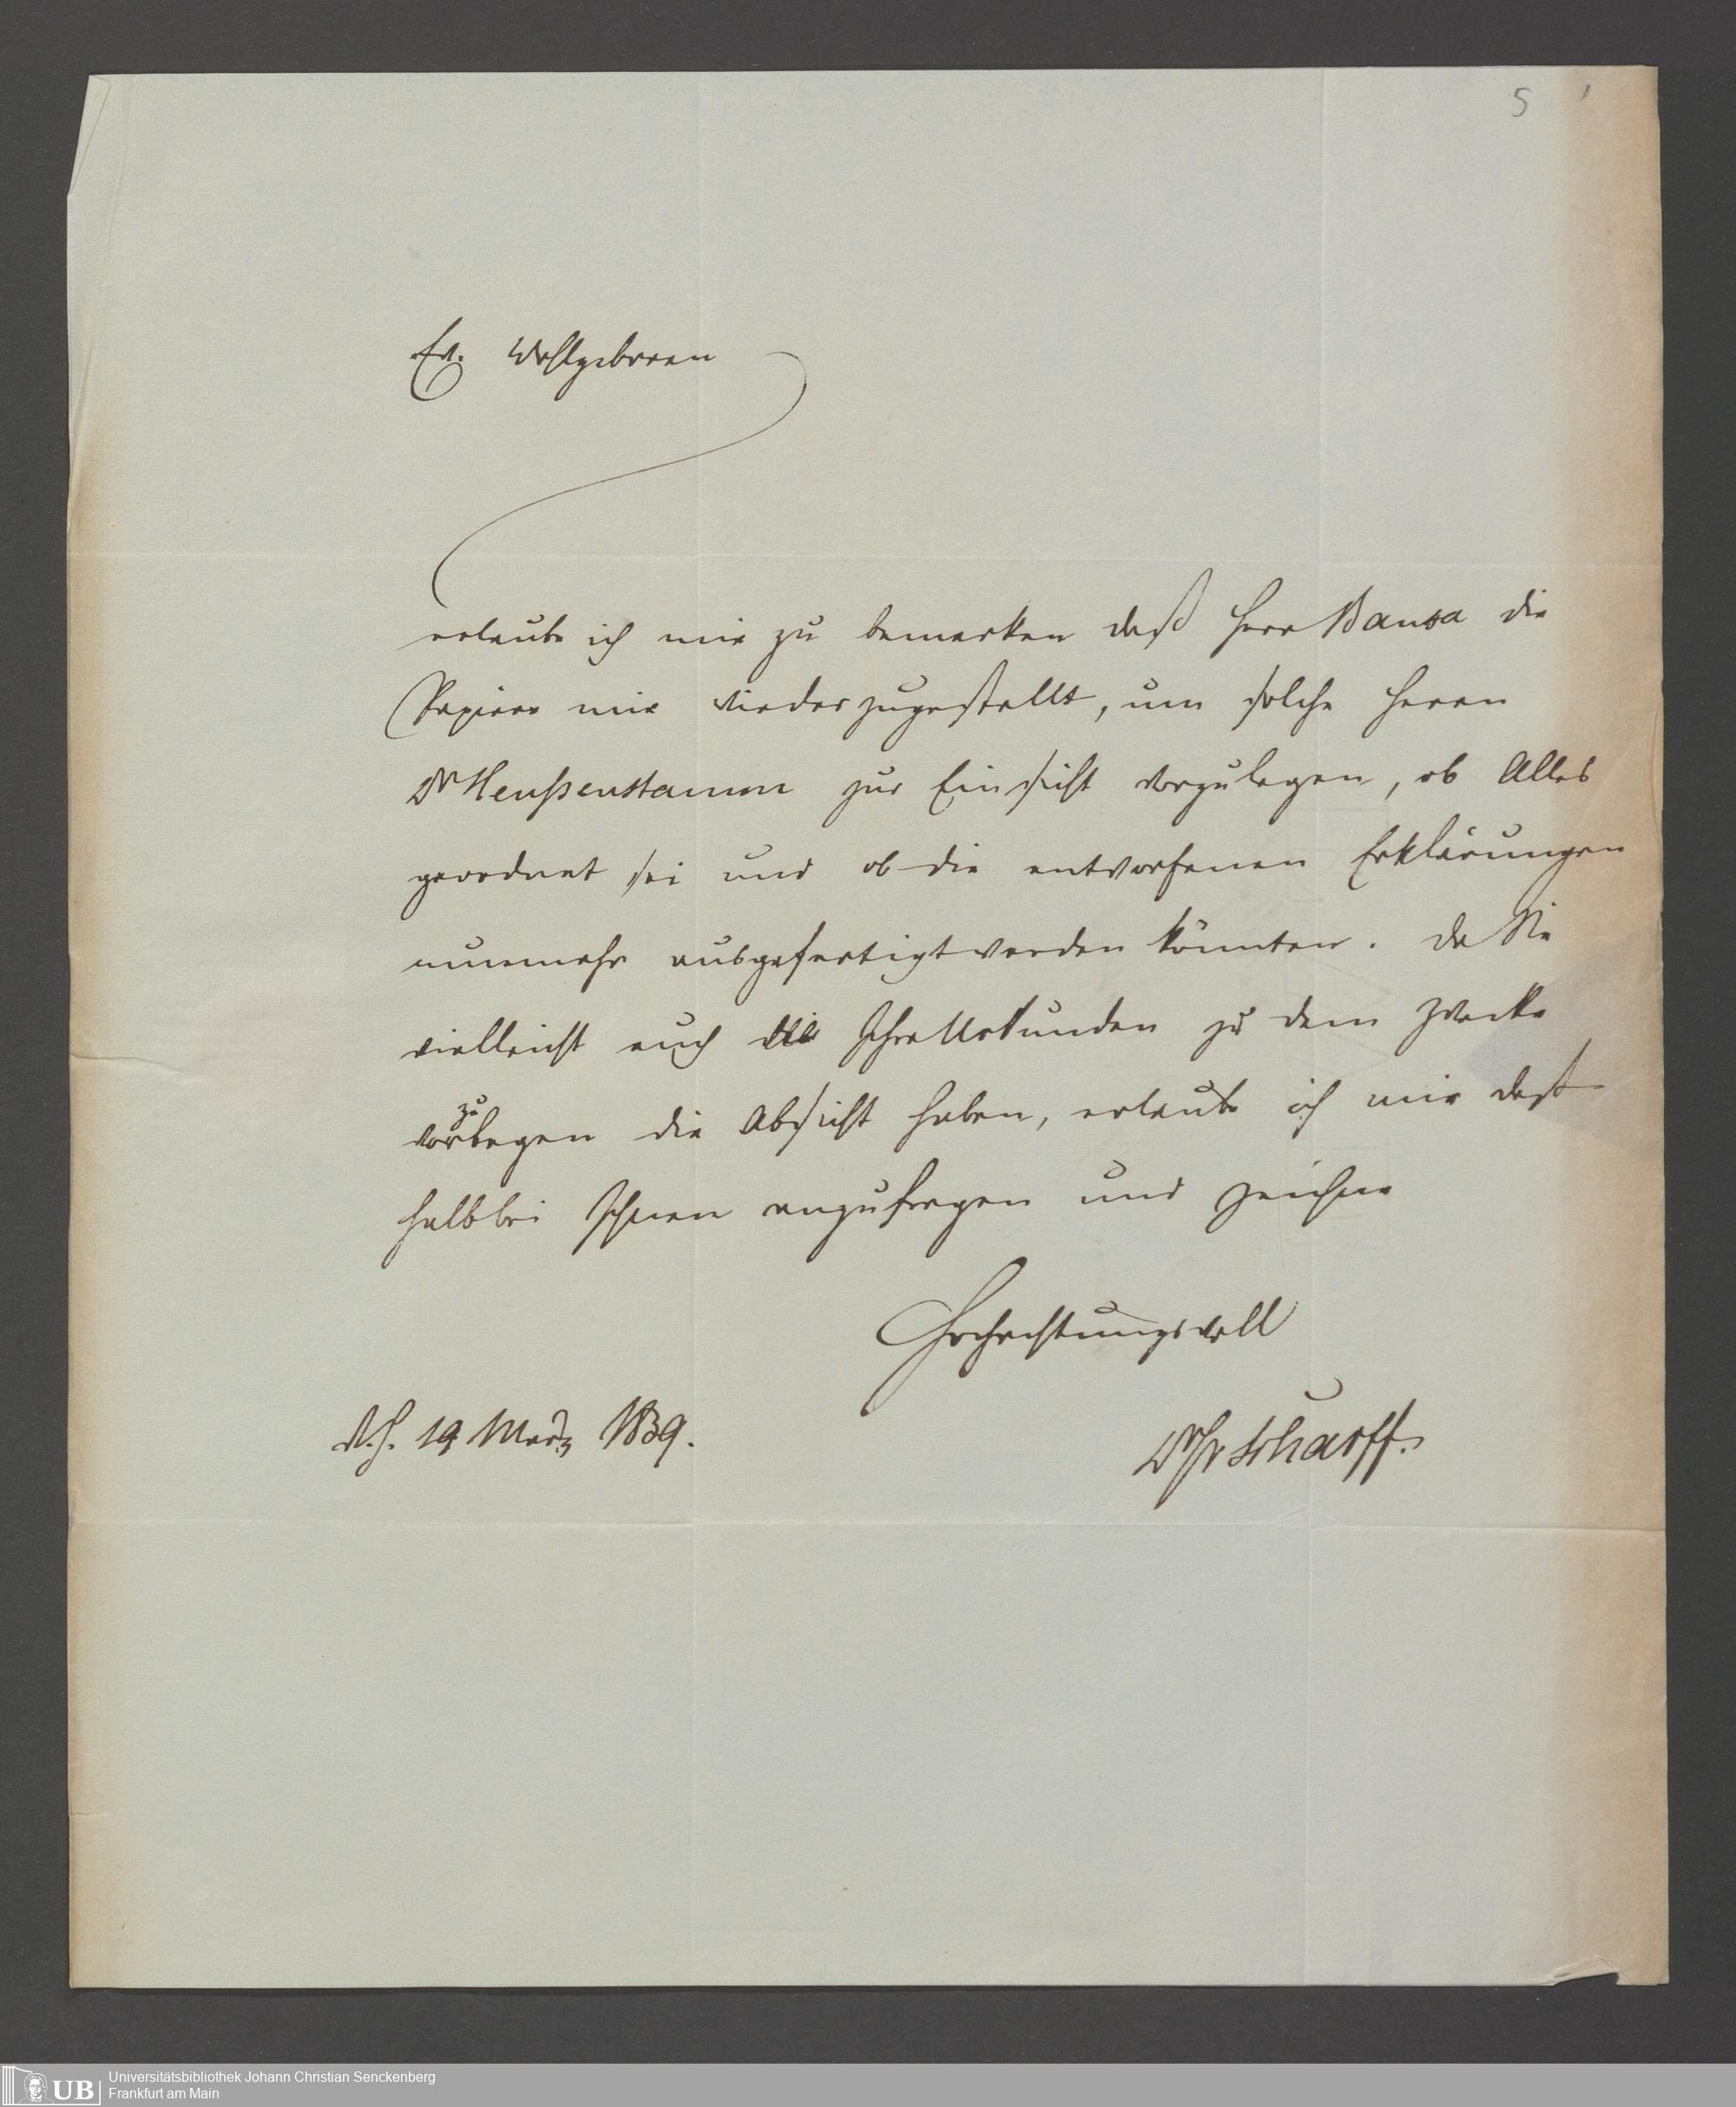 5
Ew. Wohlgeboren
erlaube ich mir zu bemerken daß Herr Bansa die
Papiere mir wieder zugestellt, um solche Herrn
Dr Heußenstamm zur Einsicht vorzulegen, ob Alles
geordnet sei und ob die entworfenen Erklärungen
nunmehr ausgefertigt werden könnten. Da Sie
vielleicht auch Ihre Urkunden zu dem Zwecke
vorzulegen die Absicht haben, erlaube ich mir deß
halb bei Ihnen anzufragen und zeichne
Hochachtungsvoll
v. H. 19 März 1839.
Dr Scharff.
Universitätsbibliothek Johann Christian Senckenberg
Frankfurt am Main
UB